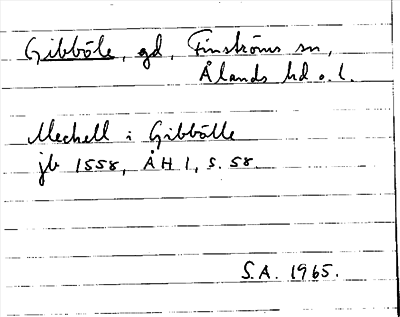 Gibböle, gd, Finströms sn,
Ålands hd o. l.
Mechell i Gibbölle
jb 1558, ÅH 1, s. 58.
S.A. 1965.